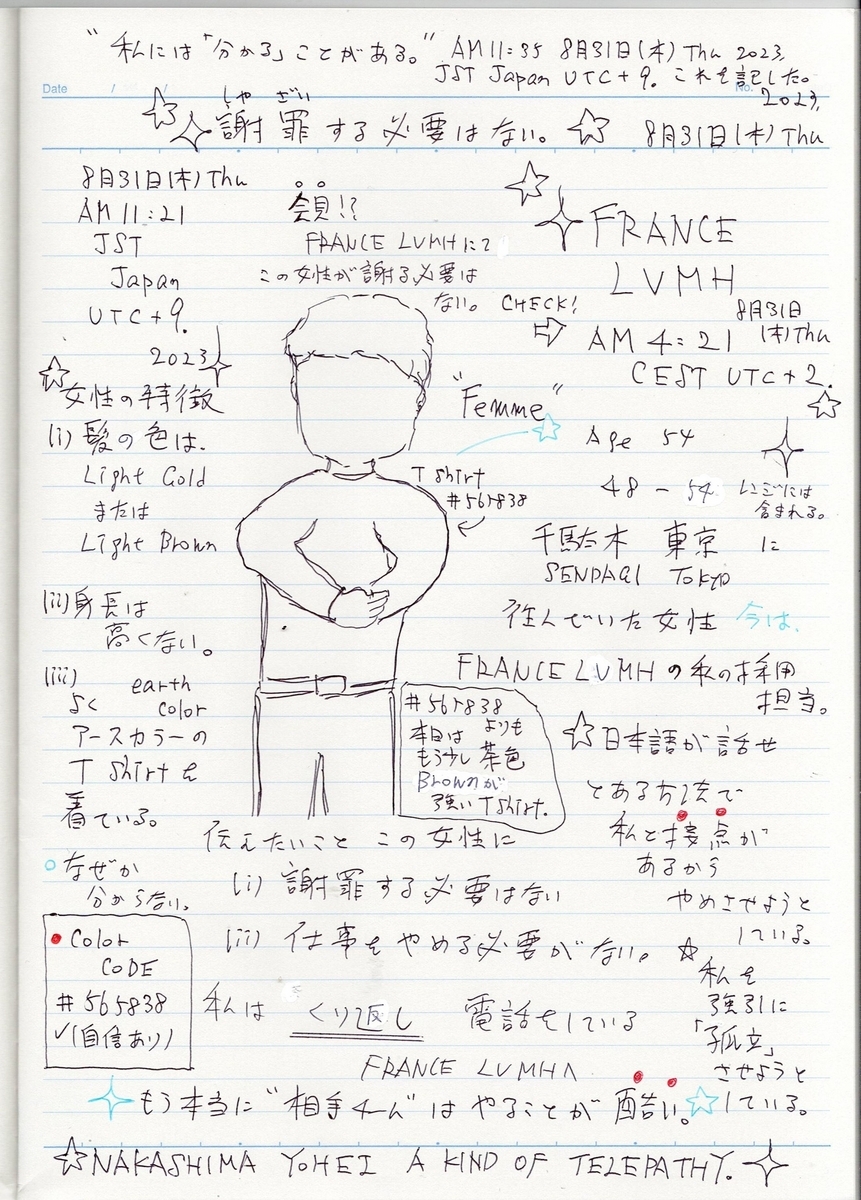 "私には「分かる」ことがある。" AM11:35 8月31日(木) Thu 2023,
JST Japan UTC+9. これを記した。
Date / / No.
2023,
しゃ ざい
謝罪する必要はない。 8月31日(木) Thu
8月31日(木) Thu
AM 11:21
JST
Japan
UTC+9.
2023
会見!?
FRANCE LVMHにて
この女性が謝る必要は
ない。
FRANCE
LVMH
CHECK!
8月31日
(木)Thu
AM 4:21
CEST UTC+2.
女性の特徴
(i) 髪の色は、
Light Gold
または
Light Brown
(ii) 身長は
高くない。
(iii)
よく earth
color
アースカラーの
T shirtを
着ている。
なぜか
分からない。
Color
CODE
#565838
✓(自信あり)
"Femme"
T shirt
#565838
Age 54
48 - 54
には
含まれる。
千駄木 東京 に
SENDAGI TOKYO
住んでいた女性 今は、
FRANCE LVMHの私の採用
担当。
#565838
本日は よりも
もう少し 茶色
Brownが
強いTshirt.
日本語が話せ
とある方法で
私と接点が
あるから
やめさせようと
している。
私を
強引に
「孤立」
させようと
している。
伝えたいこと この女性に
(i) 謝罪する必要はない
(ii) 仕事をやめる必要がない。
私は くり返し 電話をしている
FRANCE LVMHへ
もう本当に"相手チーム"はやることが酷い。
NAKASHIMA YOHEI A KIND OF TELEPATHY.